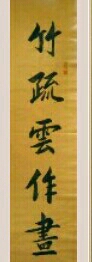 竹疏雲作晝